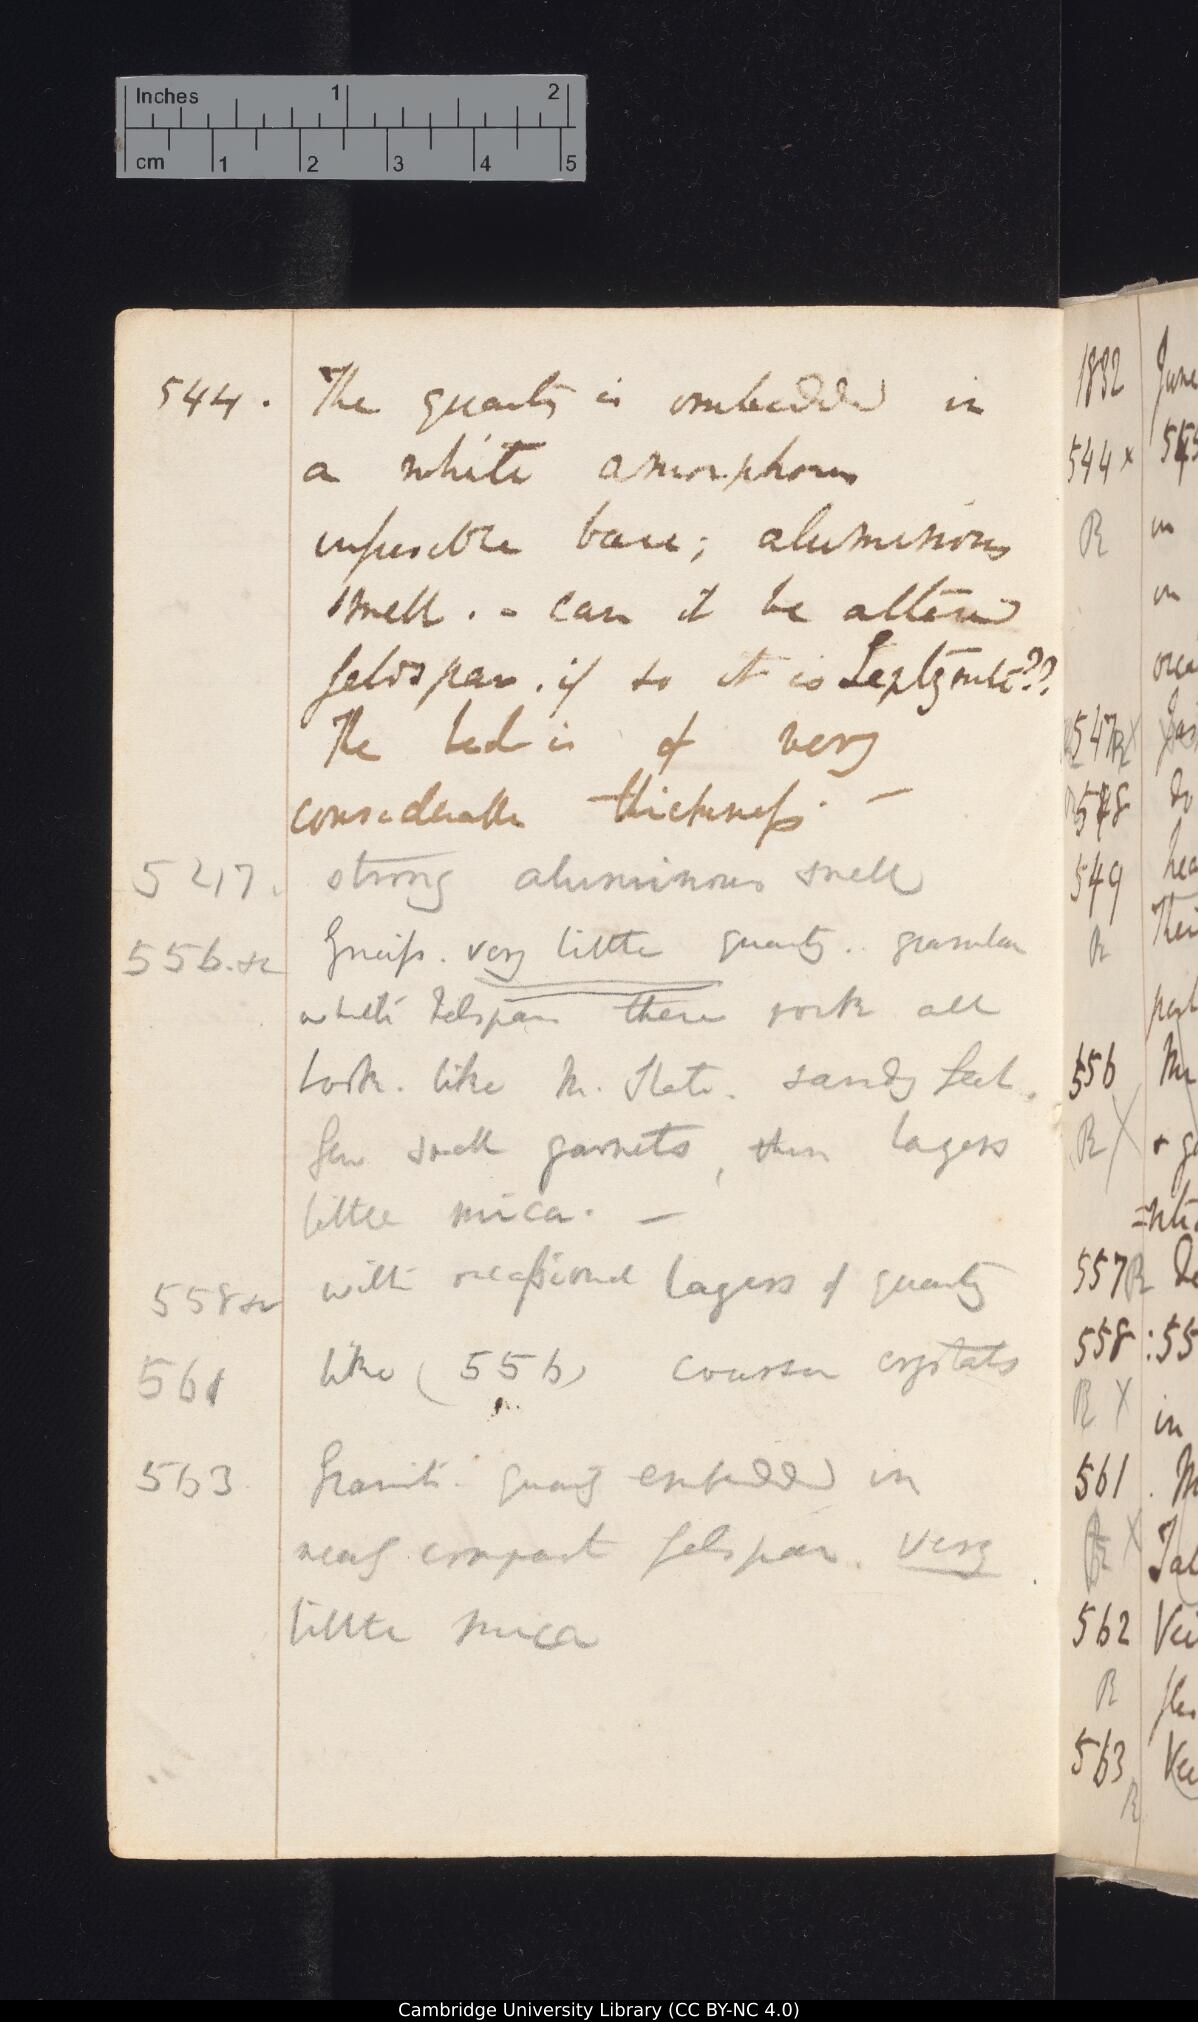 Inches 1 2
cm 1 2 3 4 5
544. The quartz is embedded in
a white amorphous
infusible base; aluminous
smell. - can it be altered
feldspar. if so it is Leptynite??
The bed is of very
considerable thickness. —
547. strong aluminous smell
556. Gneiss. very little quartz. granular
white felspar these rock all
look. like M. Slate. sandy feel.
few small garnets, thin layers
little mica. —
558 with occasional layers of quartz
561 like (556) coarser crystals
563 Granite. quartz embedded in
nearly compact felspar. very
little mica
1832 June
544 x
R in
in
547 R X
548 do
549
R
556
R X
557 R
558 :55
R X in
561 .
R X
562
R
563
R
Cambridge University Library (CC BY-NC 4.0)